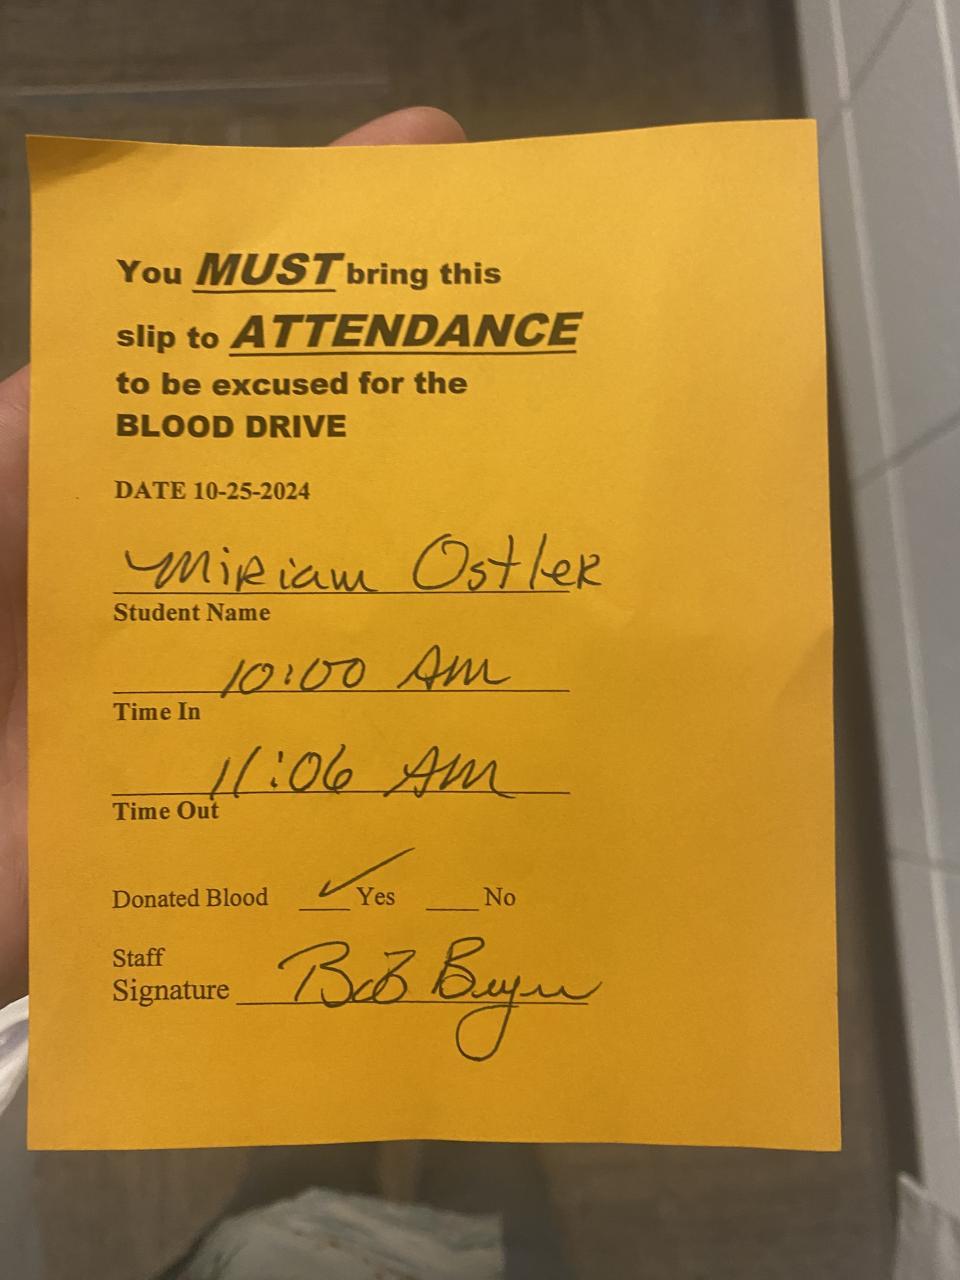 You MUST bring this
slip to ATTENDANCE
to be excused for the
BLOOD DRIVE
DATE 10-25-2024
Miriam Ostler
Student Name
10:00 AM
Time In
11:06 AM
Time Out
Donated Blood ✓ Yes ___ No
Staff
Signature Bob